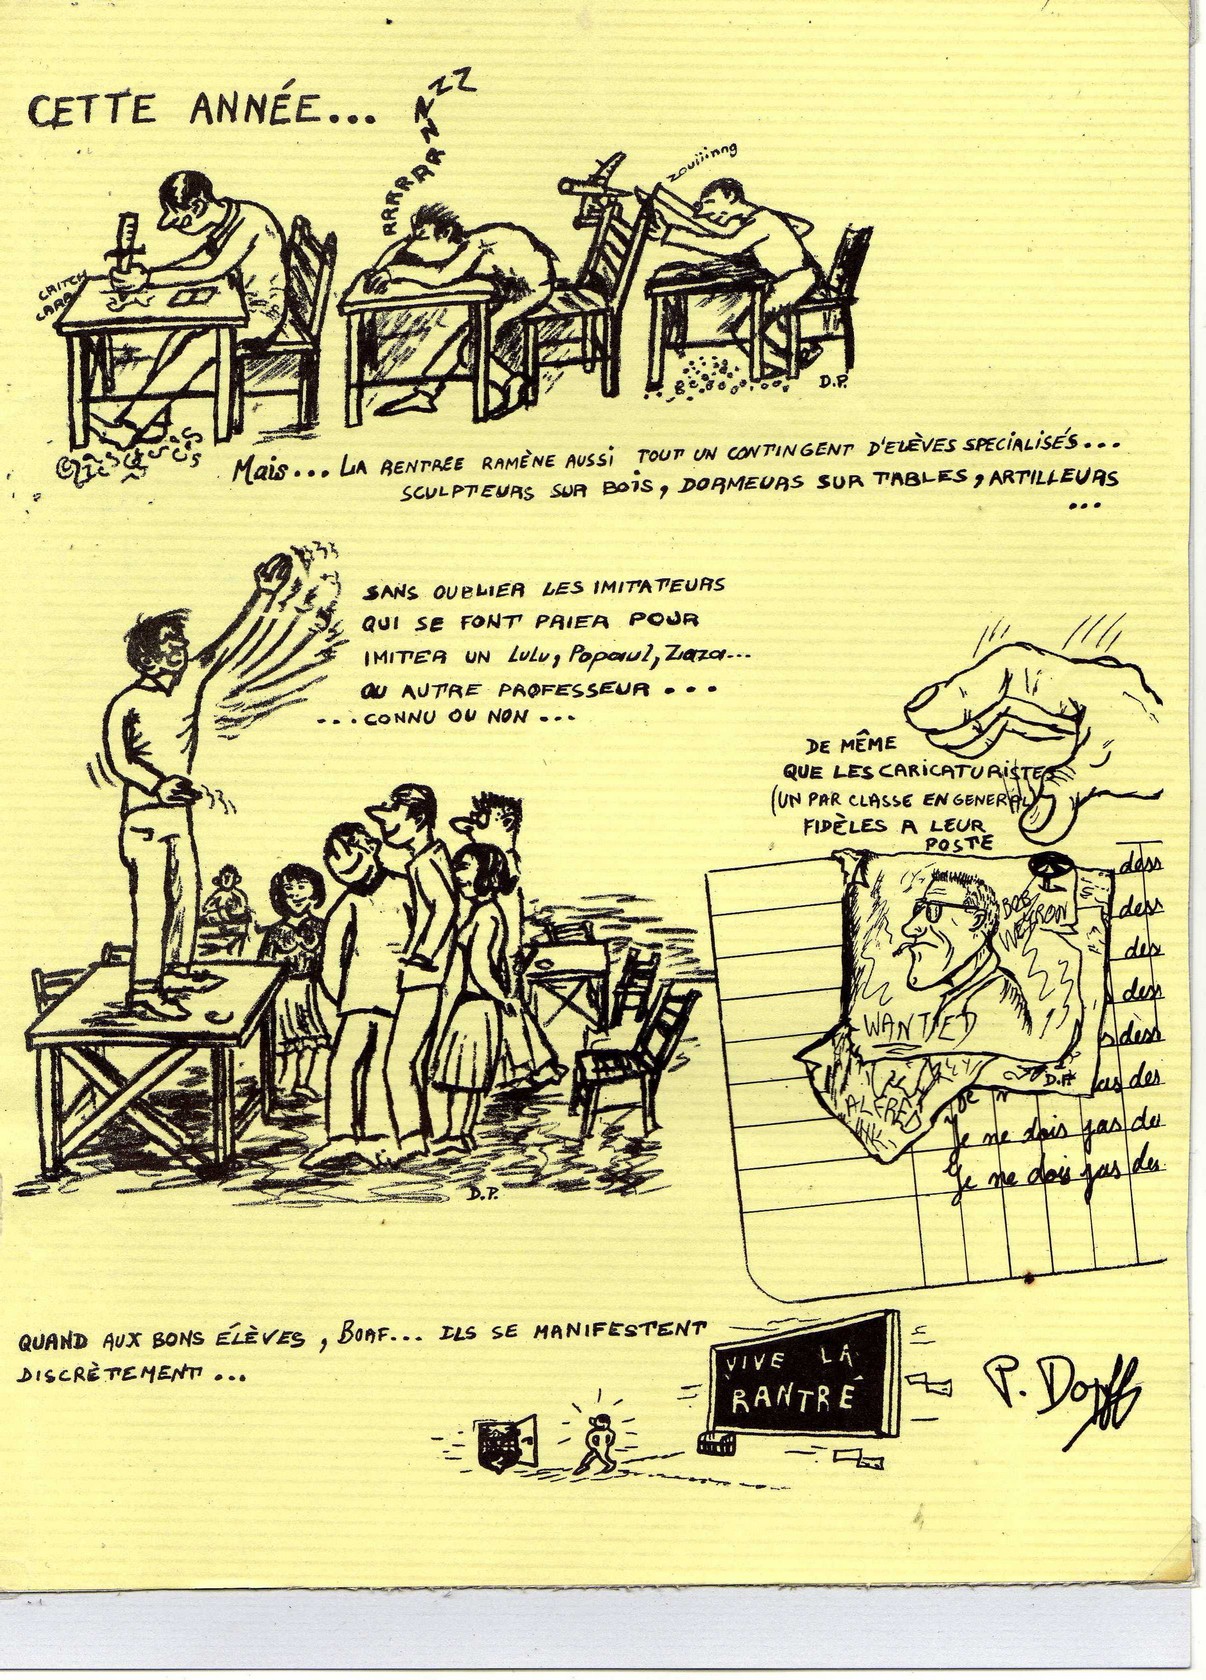 CETTE ANNÉE...
RRRRRRRZZZZ
zouiiinng
CRITCH
CARA
D.P.
Mais... LA RENTREE RAMÈNE AUSSI TOUT UN CONTINGENT D'ELÈVES SPECIALISÉS...
SCULPTEURS SUR BOIS, DORMEURS SUR TABLES, ARTILLEURS
...
SANS OUBLIER LES IMITATEURS
QUI SE FONT PRIER POUR
IMITER UN LULU, Popaul, Zaza...
OU AUTRE PROFESSEUR...
...CONNU OU NON...
D.P.
DE MÊME
QUE LES CARICATURISTES
(UN PAR CLASSE EN GENERAL)
FIDÈLES A LEUR
POSTE
BOB
WANTED
ALFRED
INK.
D.P.
dess
dess
des
dess
s dess
as des
Je n
Je ne dois pas de
Je ne dois pas des
QUAND AUX BONS ÉLÈVES, BOAF... ILS SE MANIFESTENT
DISCRÈTEMENT...
VIVE LA
RANTRÉ
P. Dopff